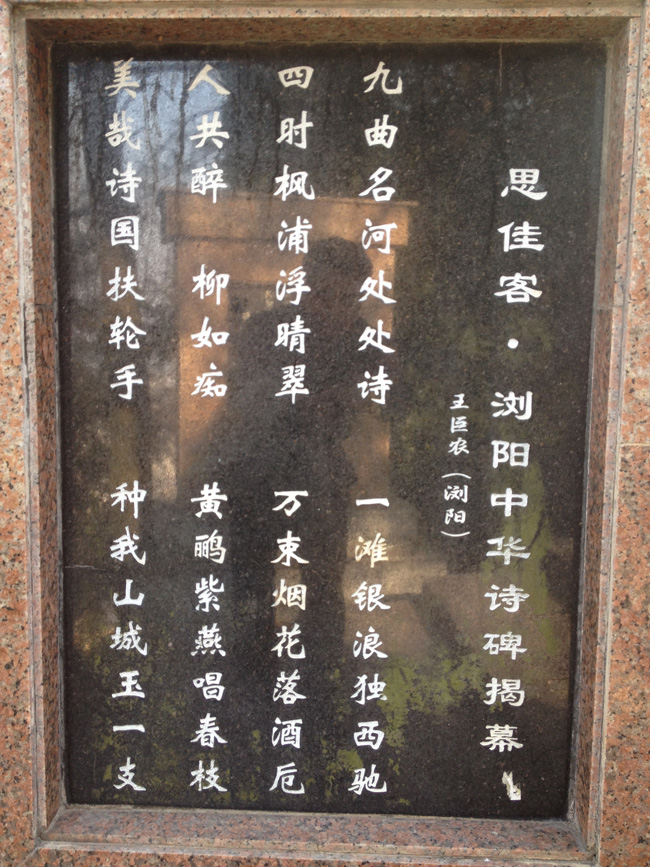 思佳客·浏阳中华诗碑揭幕
王巨农（浏阳）
九曲名河处处诗 一滩银浪独西驰
四时枫浦浮晴翠 万束烟花落酒卮
人共醉 柳如痴 黄鹂紫燕唱春枝
美哉诗国扶轮手 种我山城玉一支